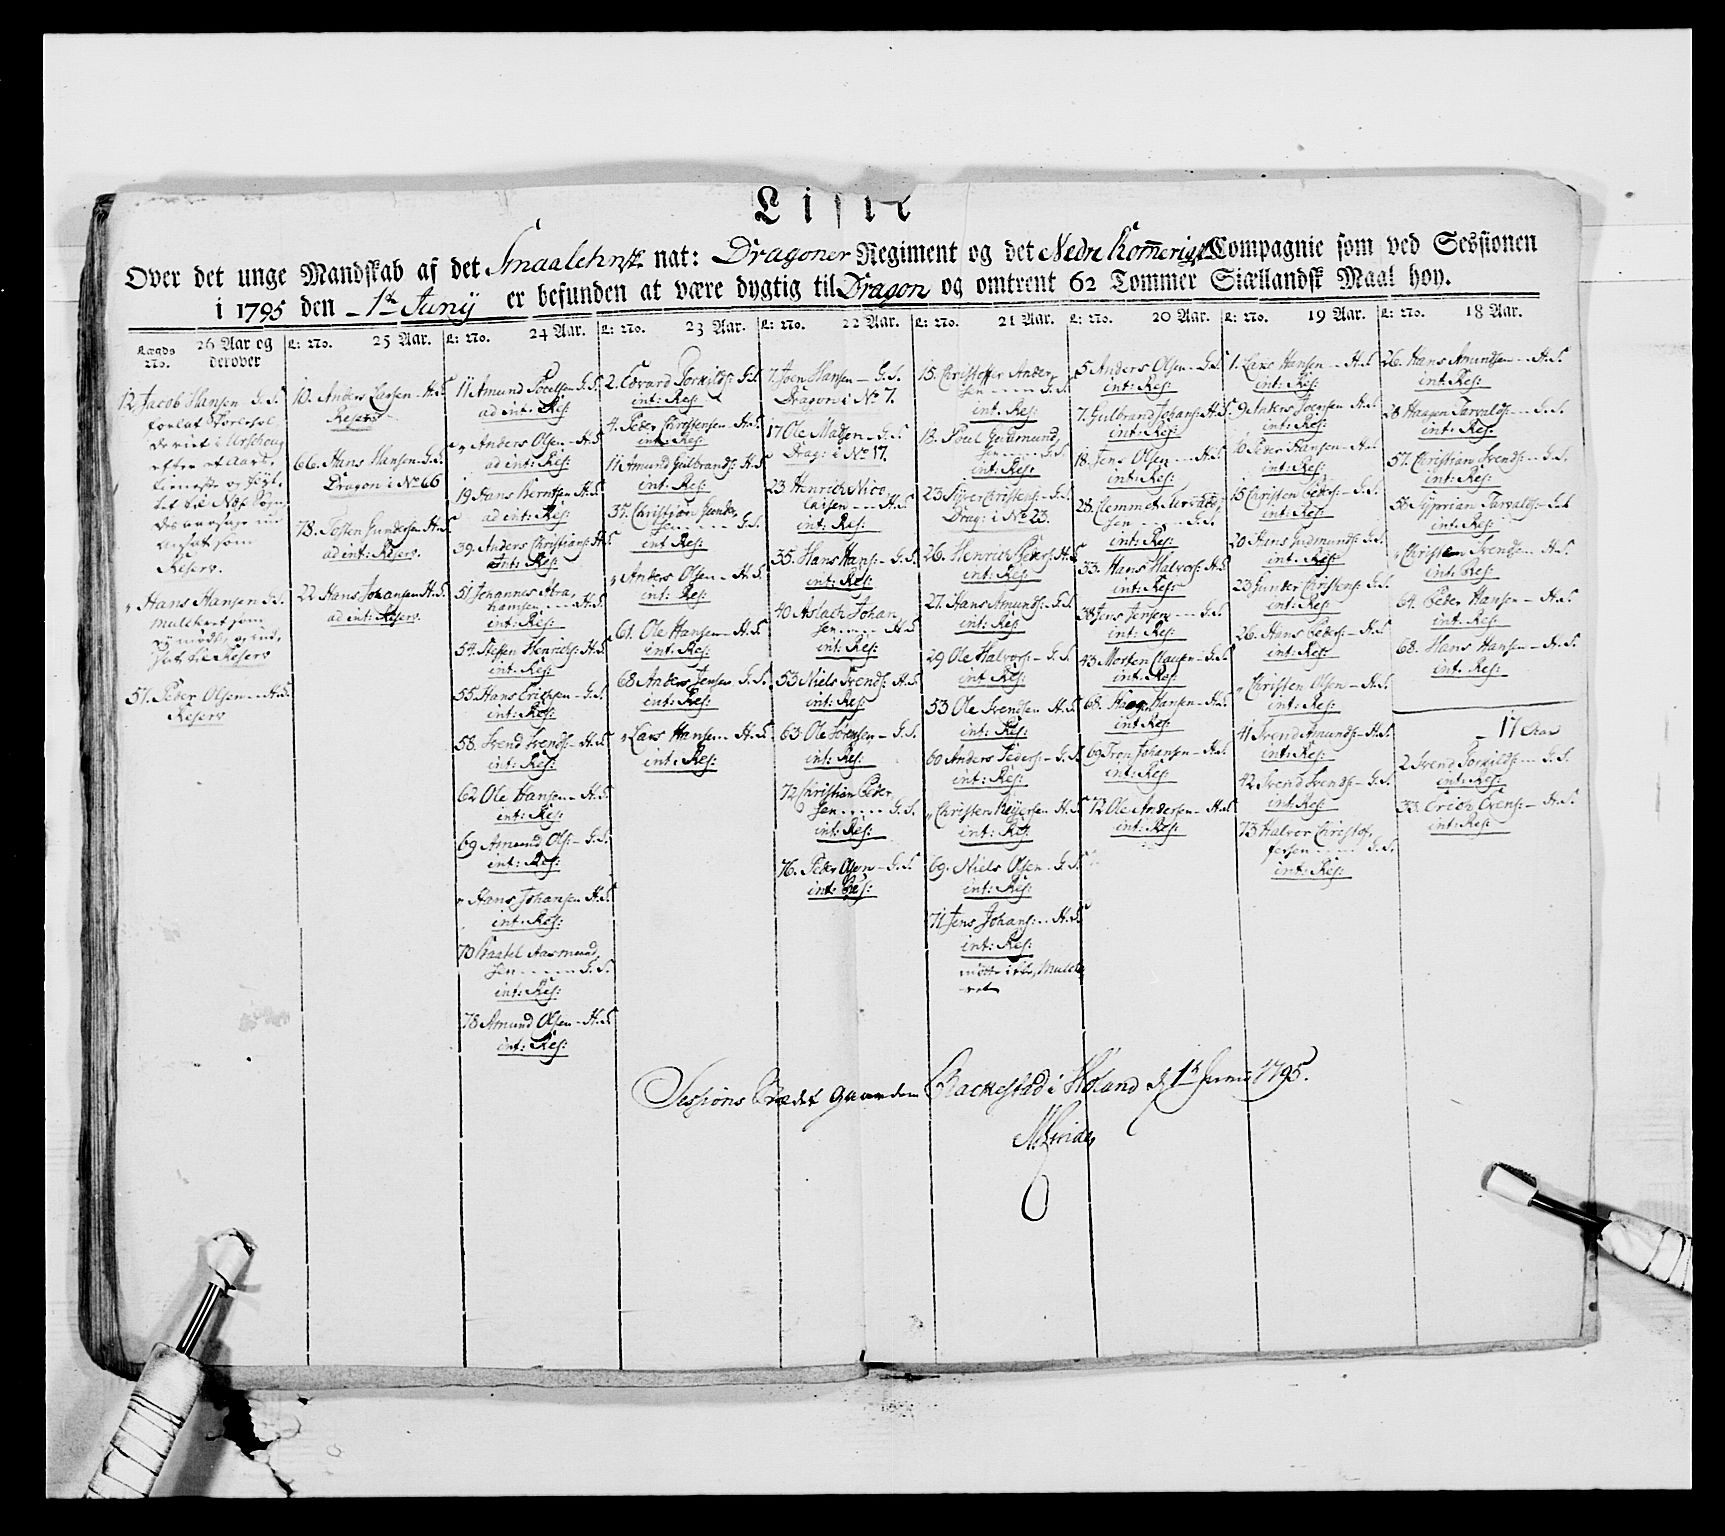 Liste
Over det unge Mandskab af det Smaalehnske nat: Dragoner Regiment og det Nedre Romerigske Compagnie som ved Sessionen
i 1795 den 1te Junij er befunden at være dygtig til Dragon og omtrent 62 Tommer Siællandsk Maal høy.
Lægds No.
26 Aar og derover
12. Jacob Hansen - G. S.
forlat
efter et Aars
tieneste og
Reserv.
" Hans Hansen G. S.
Mulctert som
Reserv
51. Peder Olsen - H. S.
Reserv
L: No. 25 Aar.
10. Anders Larsen - H. S.
Reserv
66. Hans Hansen - G. S.
Dragon i No 66
78. Tosten Gundersen H. S.
ad int: Reserv.
22 Hans Johansen H. S.
ad int: Reserv.
L: No. 24 Aar.
11 Amund Poelsen G. S.
ad int: Res:
" Anders Olsen - H. S.
ad int: Res:
19 Hans Berntsen H. S.
ad int: Res:
39. Anders Christians: H. S.
int: Res:
51 Johannes Abra
hamsen - - - H. S.
int: Res:
54. Steffen Henrichs: H. S.
int: Res:
55. Hans Erichsen - G. S.
int: Res:
58. Svend Svends: - H. S.
int: Res:
62 Ole Hansen - H. S.
int: Res:
69 Amund Ols: - G. S.
int: Res:
" Hans Johansen H. S.
int: Res:
70 Aasmund,
sen - - - - G. S.
int: Res:
78 Amund Olsen - H. S.
int: Res:
L: No. 23 Aar.
2. Edvard Torkilds: G. S.
int: Res:
4. Peder Christensen - H. S.
int: Res:
11 Amund Gulbrands: H. S.
int: Res:
37. Christian Gunder,
sen - - - - G. S.
int: Res:
" Anders Olsen - H. S.
int: Res:
61. Ole Hansen - H. S.
int: Res:
68 Anders Jensen G. S.
int: Res:
" Lars Hansen - H. S.
int: Res:
L: No. 22 Aar.
7. Joen Hansen - G. S.
Dragon i No 7.
17 Ole Madsen - G. S.
Drag: i No 17.
23 Henrich Nico
laisen - - - H. S.
int: Res:
35. Hans Hans: - G. S.
int: Res:
40 Aslach Johan
sen - - - - H. S.
int: Res:
53 Niels Svends: H. S.
int: Res:
63. Ole Sörensen - G. S.
int: Res:
72 Christian Peder
sen - - - - G. S.
int: Res:
76. Peder Olsen - G. S.
int: Res:
L: No. 21 Aar.
15. Christopher Ander
sen - - - - G. S.
int: Res:
18. Poul Gudmund,
sen - - - G. S.
int: Res:
23 Syver Christens: - G. S.
Drag: i No 23.
26. Henrich Peders: H. S.
int: Res:
27. Hans Amunds: G. S.
int: Res:
29 Ole Halvors: - G. S.
int Res:
53 Ole Svendsen H. S.
int: Res:
60 Anders Peders: - G. S.
int: Res:
" Christen H. S.
int: Res:
69. Niels Olsen - G. S.
int: Res:
71 Jens Johans: - H. S.
int: Res:
mötte ikke, Mulcte,
ret
L: No. 20 Aar.
5 Anders Olsen - G. S.
int: Res:
7. Gulbrand Johans: H. S.
int: Res:
18. Jens Olsen - - H. S.
int: Res:
28. Clemmet
sen - - - - G. S.
int: Res:
33. Hans Halvors: H. S.
int: Res:
38 Jens Jensen - - G. S.
int: Res:
43. Morten Clausen - G. S.
int: Res:
68. Hansen - H. S.
int: Res:
69 Johansen - H. S.
int: Res:
72 Ole Andersen - H. S.
int: Res:
L: No. 19 Aar.
1. Lars Hansen - - H. S.
int: Res:
9 Anders Joensen H. S.
int: Res:
10 Peder Hansen - H. S.
int: Res:
15 Christen Peders: - G. S.
int: Res:
20 Hans Gudmunds: G. S.
int: Res:
23 Gunder Christens: G. S.
int: Res:
26. Hans Peders: - H. S.
int: Res:
" Christen Olsen - H. S.
int: Res:
41 Svend Amunds: - H. S.
int: Res:
42 Svend Svends: - G. S.
int: Res:
73 Halvor Christof,
fersen - - - G. S.
int: Res:
L: No. 18 Aar.
26. Hans Amundsen - - H. S.
int: Res:
28 Haagen Tarvalds: - - G. S.
int: Res:
57. Christian Svends: - G. S.
int: Res:
58 Syprian Tarvalds: - G. S.
int: Res:
" Christen Svends: - H. S.
int: Res:
64. Peder Hansen - H. S.
int: Res:
68. Hans Hansen - H. S.
int: Res:
17 Aar
2 Svend Torkilds: - - G. S.
int: Res:
33. Erich Evens: - H. S.
int: Res:
Sessions Brædet Gaarden Backestad i Höland d. 1te Junii 1795.